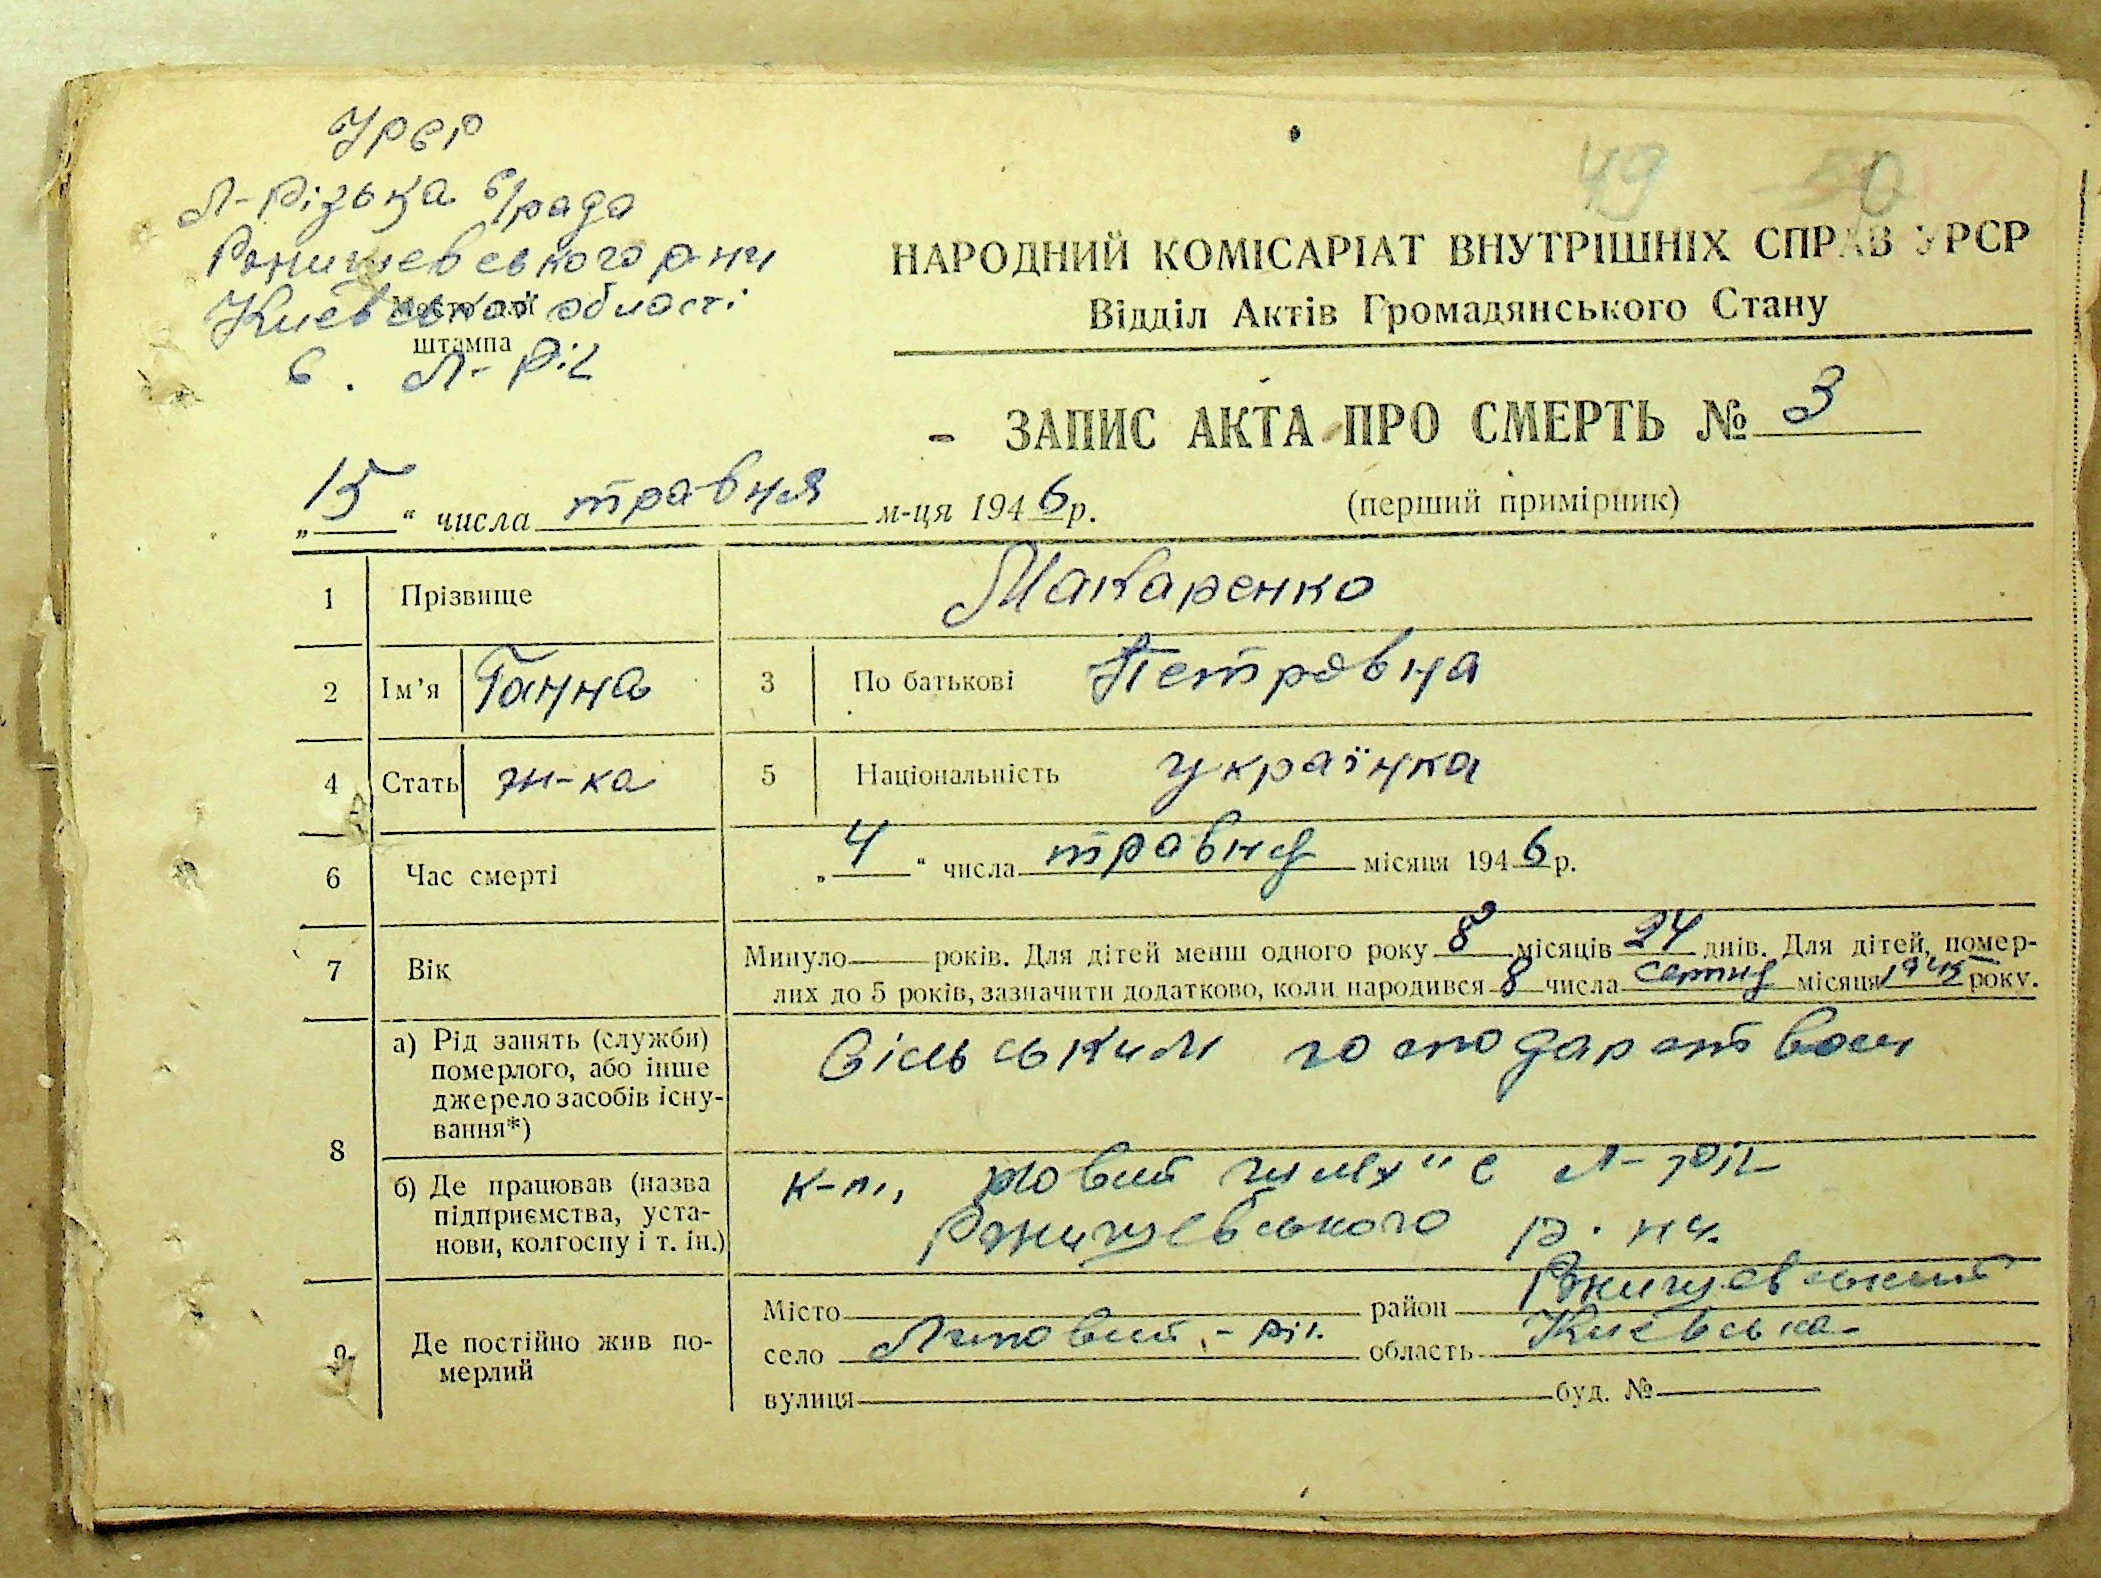 УРСР
Л-Різька с/рада
Ржищевського р-ну
Київської області
Місце для
штампа
с. Л-Ріг
49 50
НАРОДНИЙ КОМІСАРІАТ ВНУТРІШНІХ СПРАВ УРСР
Відділ Актів Громадянського Стану
ЗАПИС АКТА ПРО СМЕРТЬ № 3
„15“ числа травня м-ця 1946 р.
(перший примірник)
1 Прізвище Макаренко
2 Ім’я Ганна 3 По батькові Петровна
4 Стать ж-ка 5 Національність українка
6 Час смерті „4“ числа травня місяця 1946 р.
7 Вік Минуло — років. Для дітей менш одного року 8 місяців 24 днів. Для дітей, помер-
лих до 5 років, зазначити додатково, коли народився 8 числа серпня місяця 1945 року.
8 а) Рід занять (служби)
померлого, або інше
джерело засобів існу-
вання*)
Сільським господарством
б) Де працював (назва
підприємства, уста-
нови, колгоспу і т. ін.)
к-п,, Новий шлях" с Л-Ріг
Ржищевського р-ну.
9 Де постійно жив по-
мерлий
Місто район Ржищевський
село Липовий-Ріг. область Київська
вулиця буд. №